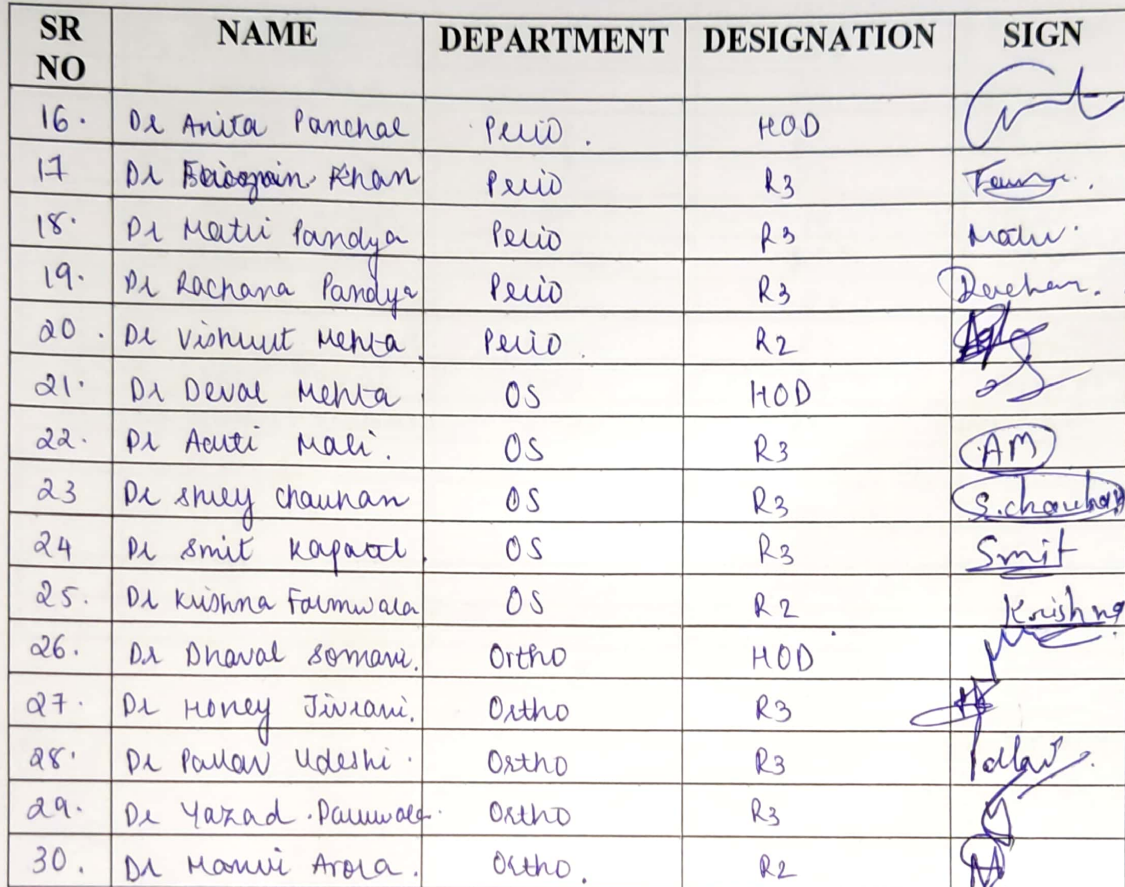 SR NO NAME DEPARTMENT DESIGNATION SIGN
16. Dr Anita Panchal Perio. HOD
17 Dr Khan Perio R3
18. Dr Maitri Pandya Perio R3
19. Dr Rachana Pandya Perio R3 Rachan.
20. Dr Vishrut Mehta. Perio. R2
21. Dr Deval Mehta OS HOD
22. Dr Aarti Mali. OS R3 AM
23 Dr Shrey Chauhan OS R3 S.chauhan
24 Dr Smit OS R3 Smit
25. Dr Krishna Farmwala OS R2 Krishna
26. Dr Dhaval Somani. Ortho HOD
27. Dr Honey Jivrani. Ortho R3
28. Dr Pallav Udeshi. Ortho R3 Pallav.
29. Dr Yazad. Ortho R3
30. Dr Manvi Arora. Ortho. R2